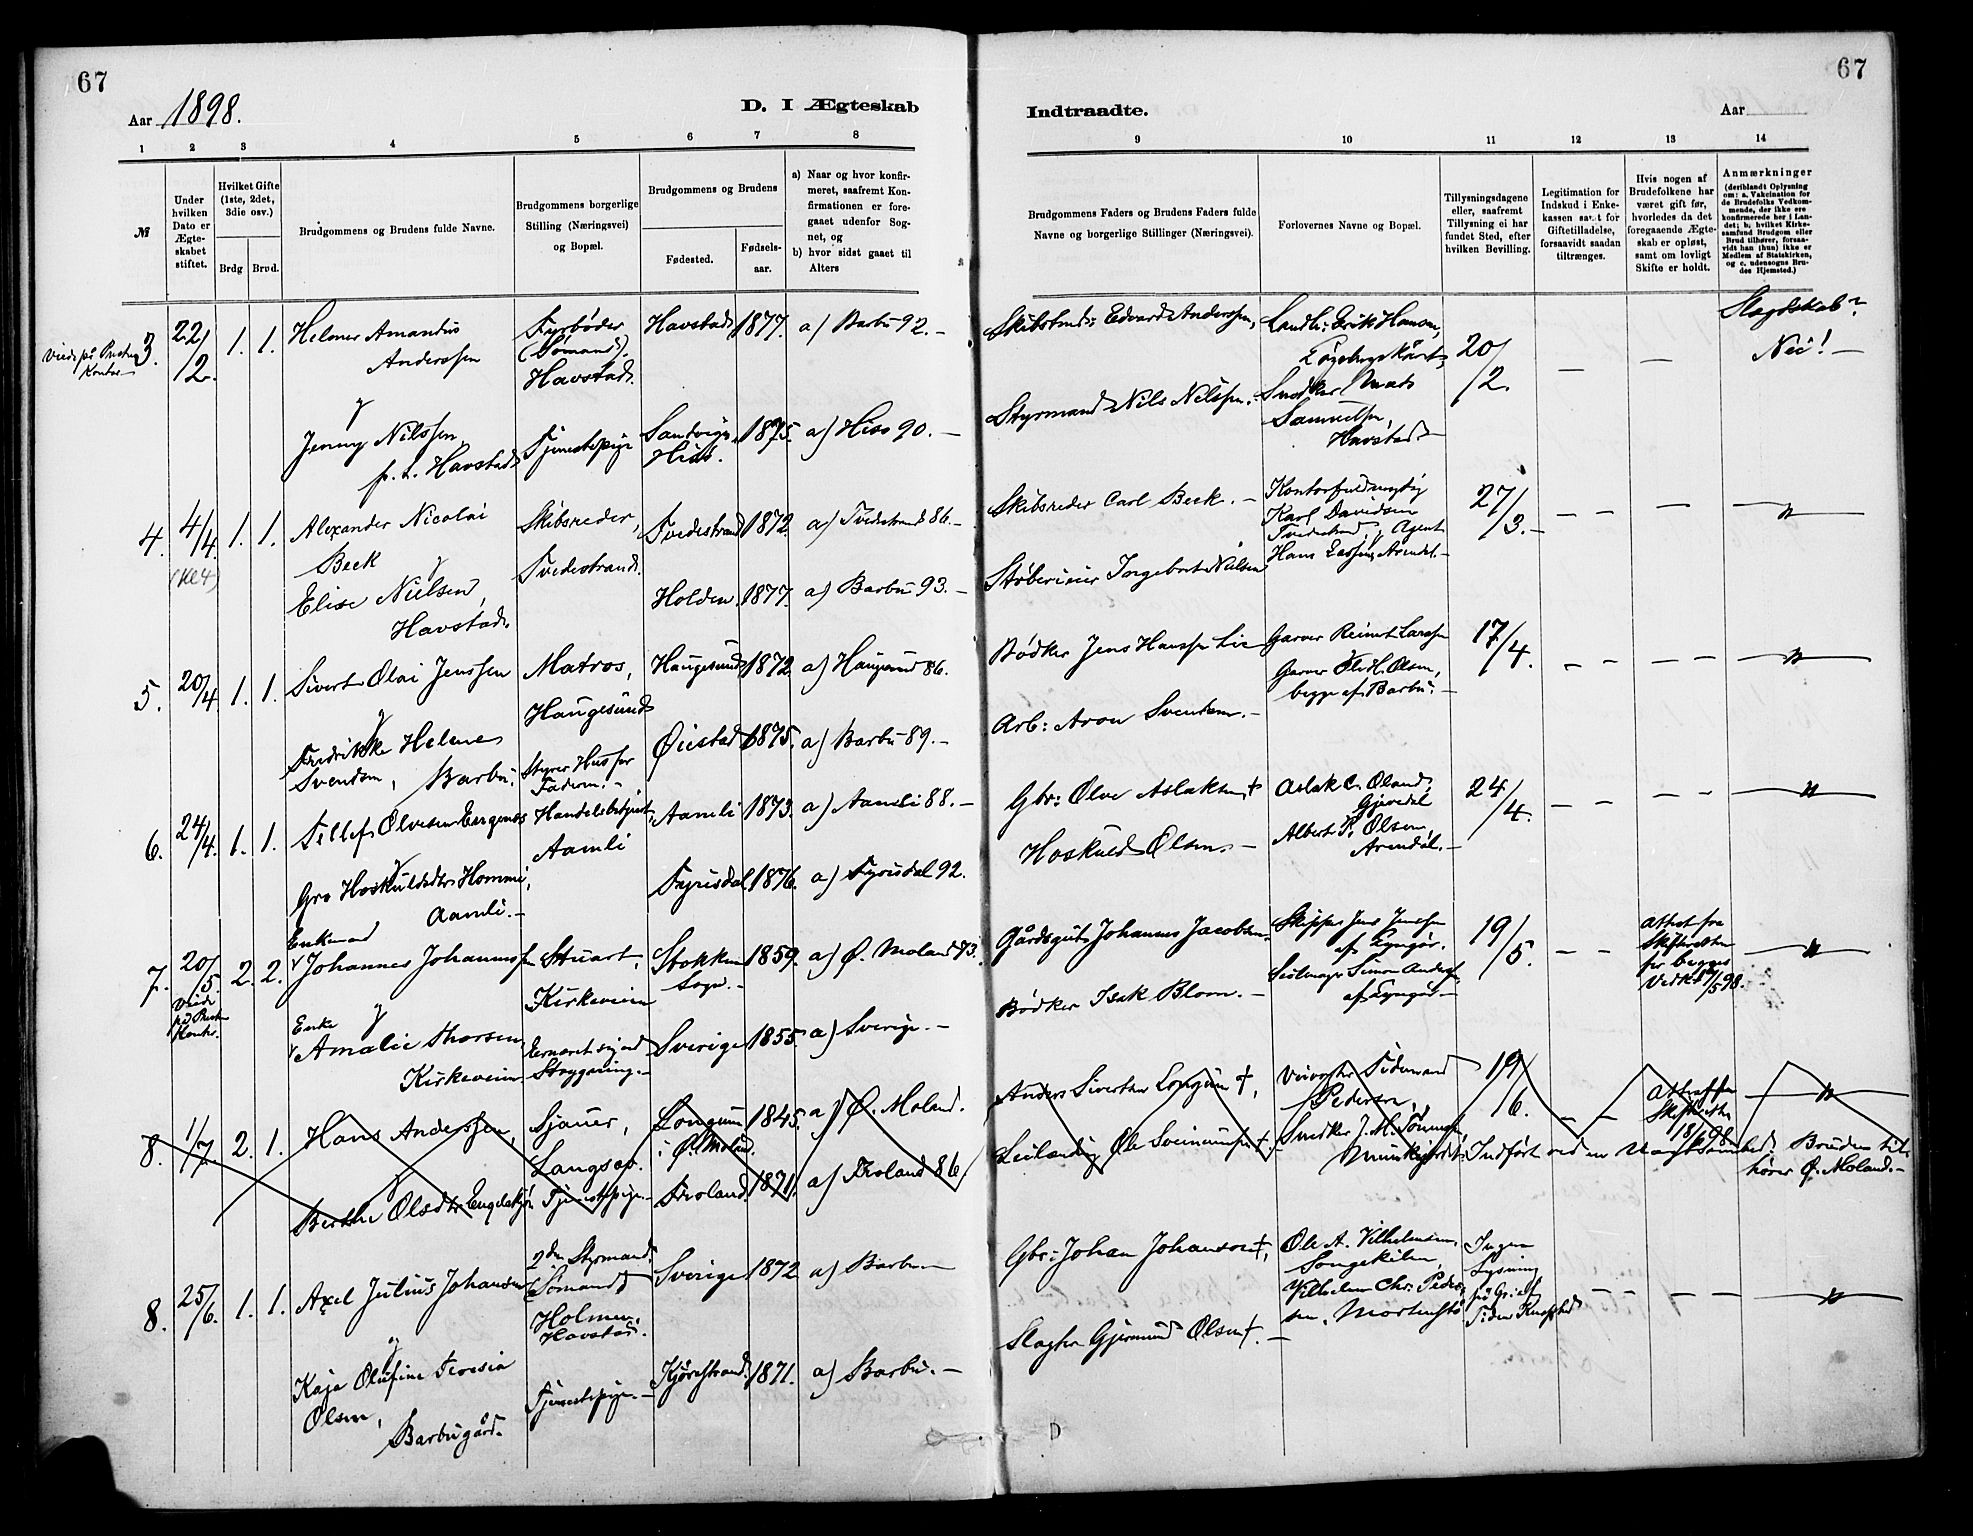 67
Aar 1898.
D. I Ægteskab
1 2 3 4 5 6 7 8
№
Under hvilken Dato er Ægteskabet stiftet.
Hvilket Gifte (1ste, 2det, 3die osv.)
Brdg Brud.
Brudgommens og Brudens fulde Navne.
Brudgommens borgerlige Stilling (Næringsvei) og Bopæl.
Brudgommens og Brudens
Fødested.
Fødselsaar.
a) Naar og hvor konfirmeret, saafremt Konfirmationen er foregaaet udenfor Sognet, og
b) hvor sidst gaaet til Alters
3. 22/2. 1. 1. Helmer Amandus
Anderssen
Fyrbøder
(Sømand).
Havstad.
Havstad 1877. a) Barbu 92. –
Jenny Nilssen,
p. t. Havstad
Tjenestepige
Sandvigen,
Hisø.
1875. a) Hisø 90. –
4. 4/4. (Kl 4) 1. 1. Alexander Nicolai
Beck
Skibsreder,
Tvedestrand.
Tvedestrand 1872. a) Tvedestrand 86. –
Elise Nielsen,
Havstad.
Holden. 1877. a) Barbu 93. –
5. 20/4 1. 1. Sivert Olai Jenssen
Matros,
Haugesund
Haugesund 1872. a) Haugesund 86.
Fredrikke Helene
Svendsen, Barbu.
Styrer Hus for
Faderen. –
Øiestad 1875. a) Barbu 89. –
6. 24/4. 1. 1. Tellef Olvesen
Handelsbetjent,
Aamli
Aamli 1873. a) Aamli 88. –
Gro Hoskuldsdtr Hommi,
Aamli. –
Fyrisdal 1876. a) Fyrisdal 92.
7. 20/5. 2. 2. Enkemand
Johannes Johannessen
Stuart,
Kirkeveien
Stokken
Sogn. –
1859. a) Ø. Moland 73.
Enke
Amalie Thorsen,
Kirkeveien
Ernæret sig ved
Strygning. –
Sverige 1855. a) Sverige. –
8. 1/7 2. 1. Hans Anderssen,
Sjauer,
Langsæ.
Longum
i Ø. Moland.
1845. a) Ø. Moland.
Berthe Olsdtr
Tjenestepige. –
Froland. 1871. a) Froland 86
8. 25/6. 1. 1. Axel Julius Johansen
2den Styrmand,
(Sømand)
Holmen,
Havstad.
Sverige 1872 a) Barbu –
Kaja Olufine Teresia
Olsen,
Barbugård.
Tjenestepige. –
1871. a) Barbu. –
67
Indtraadte.
Aar
9 10 11 12 13 14
Brudgommens Faders og Brudens Faders fulde Navne og borgerlige Stillinger (Næringsvei).
Forlovernes Navne og Bopæl.
Tillysningsdagene eller, saafremt Tillysning ei har fundet Sted, efter hvilken Bevilling.
Legitimation for Indskud i Enkekassen samt for Giftetilladelse, forsaavidt saadan tiltrænges.
Hvis nogen af Brudefolkene har været gift før, hvorledes da det foregaaende Ægteskab er opløst, samt om lovligt Skifte er holdt.
Anmærkninger
(deriblandt Oplysning om: a. Vakcination for de Brudefolks Vedkommende, der ikke ere konfirmerede her i Landet; b. hvilket Kirkesamfund Brudgom eller Brud tilhører, forsaavidt han (hun) ikke er Medlem af Statskirken, og c. udensogns Brudes Hjemsted.)
Edvard Anderssen,
20/2.
– –
Slægtskab?
Nei! –
Styrmand Nils Nilssen.
Snedker Mads
Samuelsen,
Havstad –
Skibsreder Carl Beck. –
Kontorfuldmægtig
Karl Davidsen
Tvedestrand, Agent
Arendal. –
27/3. –
Støberieier Ingebret Nielsen
Bødker Jens Hanssen Lie
Garver Reinert Larssen
Garver Olsen,
begge af Barbu. –
17/4.
Arb: Aron Svendsen. –
Gbr: Olve Aslaksen +
Aslak O. Øland,
Gjøvdal
Albert P. Olsen
Arendal. –
24/4.
Hoskuld Olsen. –
Johannes Jacobsen
Skipper Jens Jenssen
af Lyngør.
Simon
af Lyngør –
19/5.
Attest fra
Skifteretten
for begges
Vedk.
Bødker Isak Blom. –
Anders Sivertsen Longum +,
Tidemand
Pedersen,
Snedker
19/6.
Attest fra
Skifteretten
18/6 98.
Ole
Indført ved en Uagtsomhed. Bruden tilhører Ø. Moland. –
Gbr: Johan Johanson +,
Ole A. Vilhelmsen,
Songekilen,
Vilhelm Chr. Pedersen,
Ingen
Lysning
på Gr. af
Tiden Knaphed
Slagter Gjermund Olsen +. –